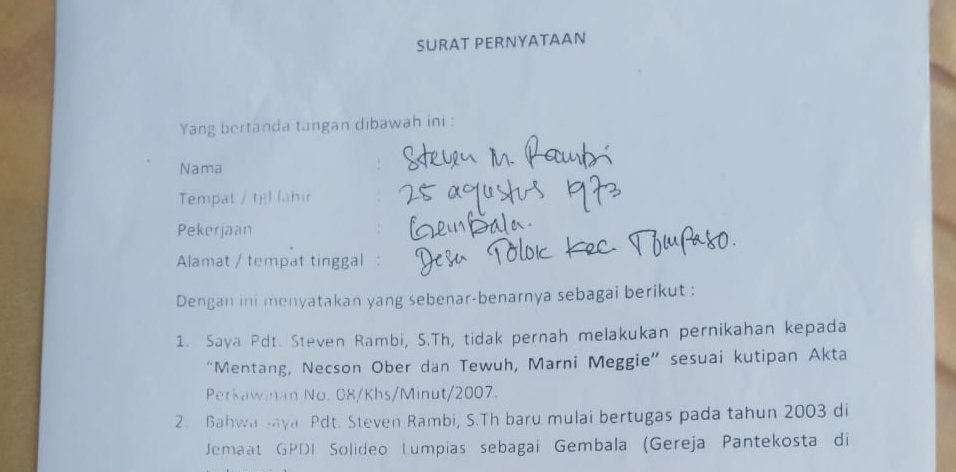 SURAT PERNYATAAN
Yang bertanda tangan dibawah ini :
Nama : Steven M. Rambi
Tempat / tgl lahir : 25 agustus 1973
Pekerjaan : Gembala.
Alamat / tempat tinggal : Desa Tolok Kec. Tompaso.
Dengan ini menyatakan yang sebenar-benarnya sebagai berikut :
1. Saya Pdt. Steven Rambi, S.Th, tidak pernah melakukan pernikahan kepada
"Mentang, Necson Ober dan Tewuh, Marni Meggie" sesuai kutipan Akta
Perkawinan No. 08/Khs/Minut/2007.
2. Bahwa saya Pdt. Steven Rambi, S.Th baru mulai bertugas pada tahun 2003 di
Jemaat GPDI Solideo Lumpias sebagai Gembala (Gereja Pantekosta di